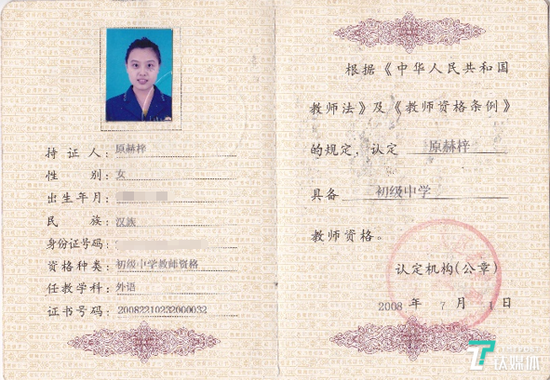 持 证 人: 原赫梓
性 别: 女
出生年月:
民 族: 汉族
身份证号码:
资格种类: 初级中学教师资格
任教学科: 外语
证书号码: 20082210232000032
根据《中华人民共和国
教师法》及《教师资格条例》
的规定, 认定 原赫梓
具备 初级中学
教师资格。
认定机构(公章)
2008 年 7 月 1 日
钛媒体